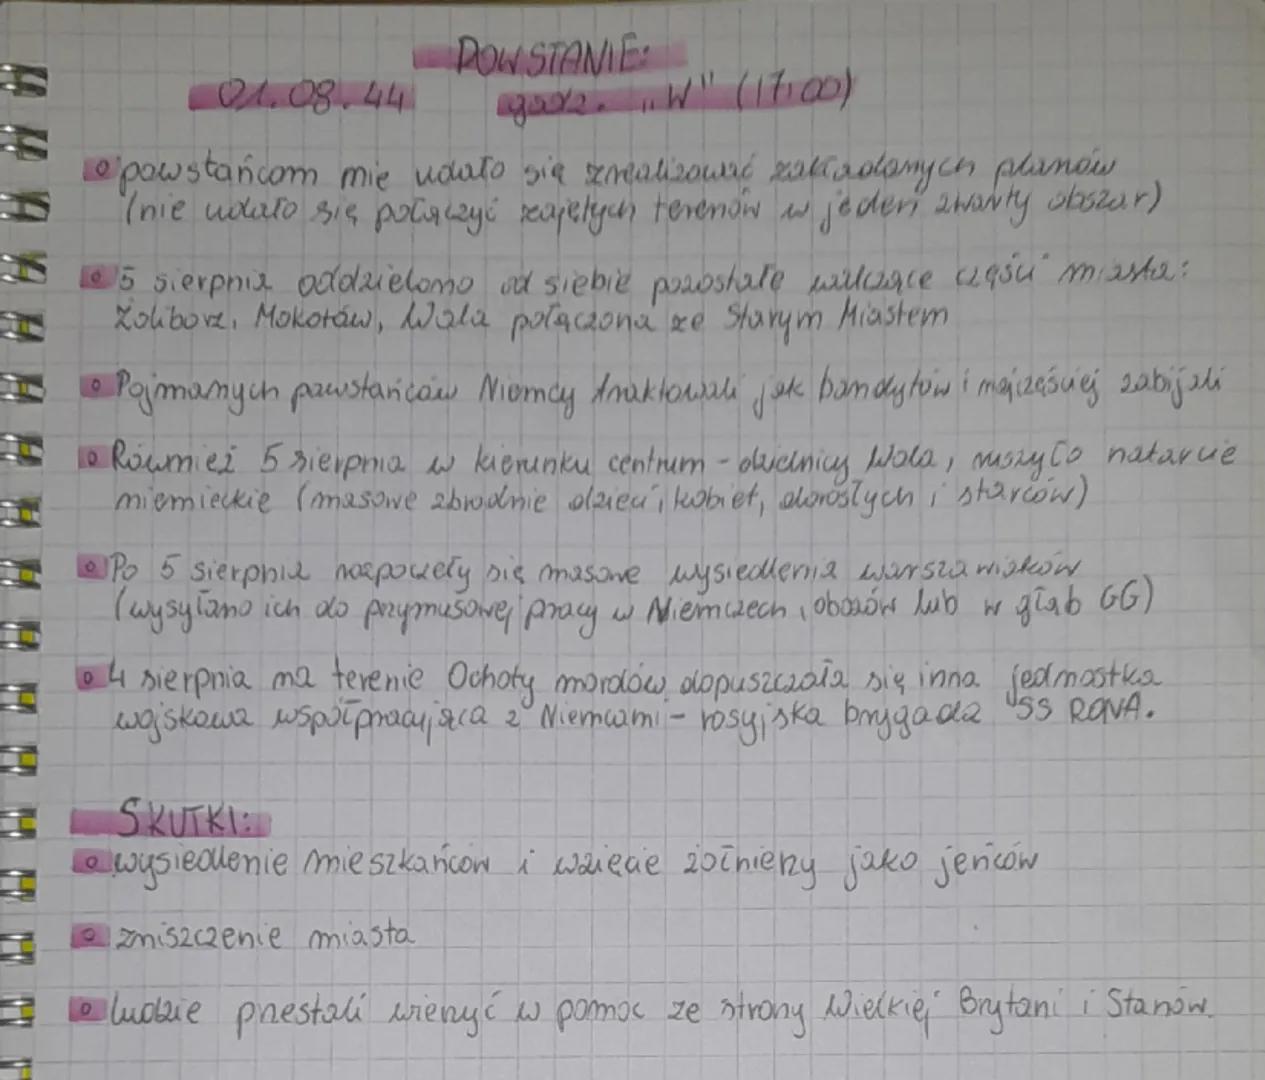 POWSTANIE:
01.08.44 godz. "W" (17:00)
powstańcom nie udało się zrealizować zakładanych planów
(nie udało się połączyć zajętych terenów w jeden zwarty obszar)
5 sierpnia oddzielono od siebie pozostałe walczące części miasta:
Żoliborz, Mokotów, Wola połączona ze Starym Miastem
Pojmanych powstańców Niemcy traktowali jak bandytów i najczęściej zabijali
Również 5 sierpnia w kierunku centrum - dzielnicy Wola, ruszyło natarcie
niemieckie (masowe zbrodnie dzieci, kobiet, dorosłych i starców)
Po 5 sierpnia rozpoczęły się masowe wysiedlenia warszawiaków
(wysyłano ich do przymusowej pracy w Niemczech, obozów lub w głąb GG)
4 sierpnia na terenie Ochoty mordów dopuszczała się inna jednostka
wojskowa współpracująca z Niemcami - rosyjska brygada SS RONA.
SKUTKI:
wysiedlenie mieszkańców i wzięcie żołnierzy jako jeńców
zniszczenie miasta
ludzie przestali wierzyć w pomoc ze strony Wielkiej Brytani i Stanów